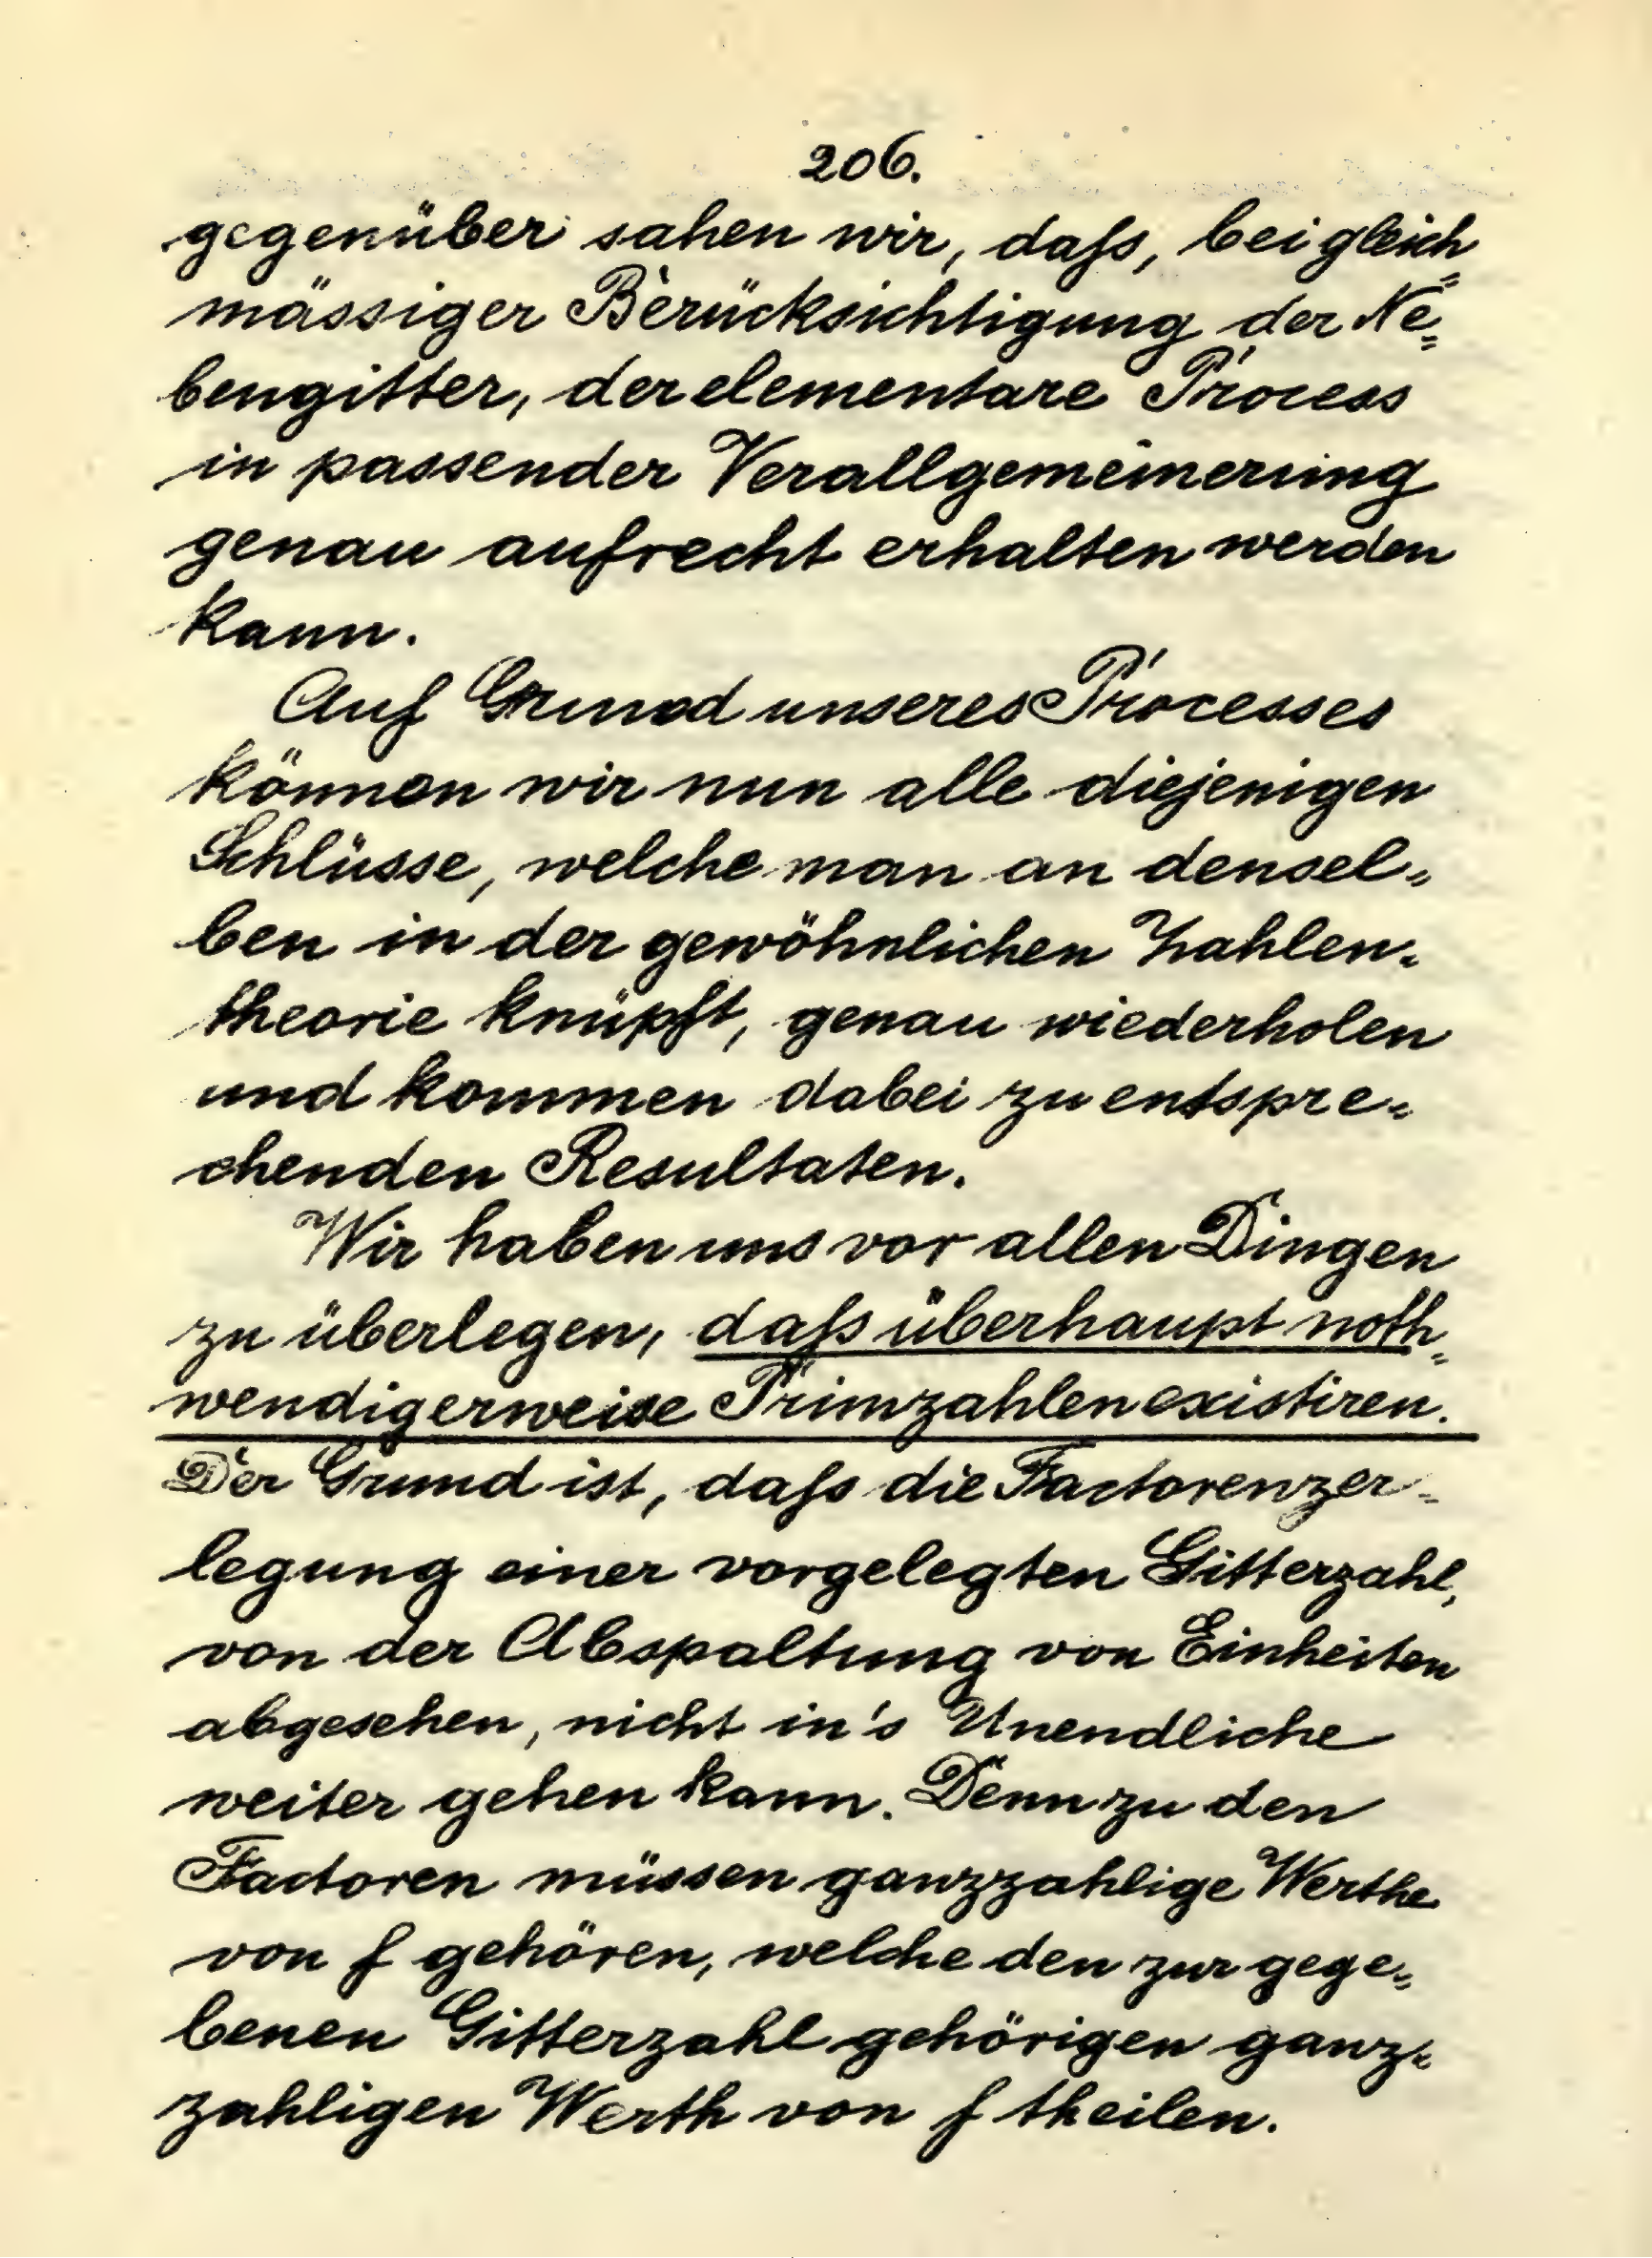 206.
gegenüber sahen wir, daſs, bei gleich=
mässiger Berücksichtigung der Ne=
bengitter, der elementare Process
in passender Verallgemeinerung
genau aufrecht erhalten werden
kann.
Auf Grund unseres Processes
können wir nun alle diejenigen
Schlüsse, welche man an densel=
ben in der gewöhnlichen Zahlen=
theorie knüpft, genau wiederholen
und kommen dabei zu entspre=
chenden Resultaten.
Wir haben uns vor allen Dingen
zu überlegen, daſs überhaupt noth=
wendigerweise Primzahlen existiren.
Der Grund ist, daſs die Factorenzer=
legung einer vorgelegten Gitterzahl,
von der Abspaltung von Einheiten
abgesehen, nicht in's Unendliche
weiter gehen kann. Denn zu den
Factoren müssen ganzzahlige Werthe
von f gehören, welche den zur gege=
benen Gitterzahl gehörigen ganz=
zahligen Werth von f theilen.